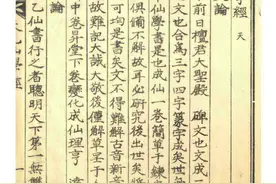 經 天
論
前日檀君大聖殿 碑文也文成
文也合為三字四字篆字成矣世
仙學書是也成仙一卷簡草于
不解故耳必研究後出世矣
可均是書矣文不得難解古音新
故難記大誠大敬後僅解草
中卷昇堂下卷變化成仙理
論
乙仙書行之者聰明天下第一無雙